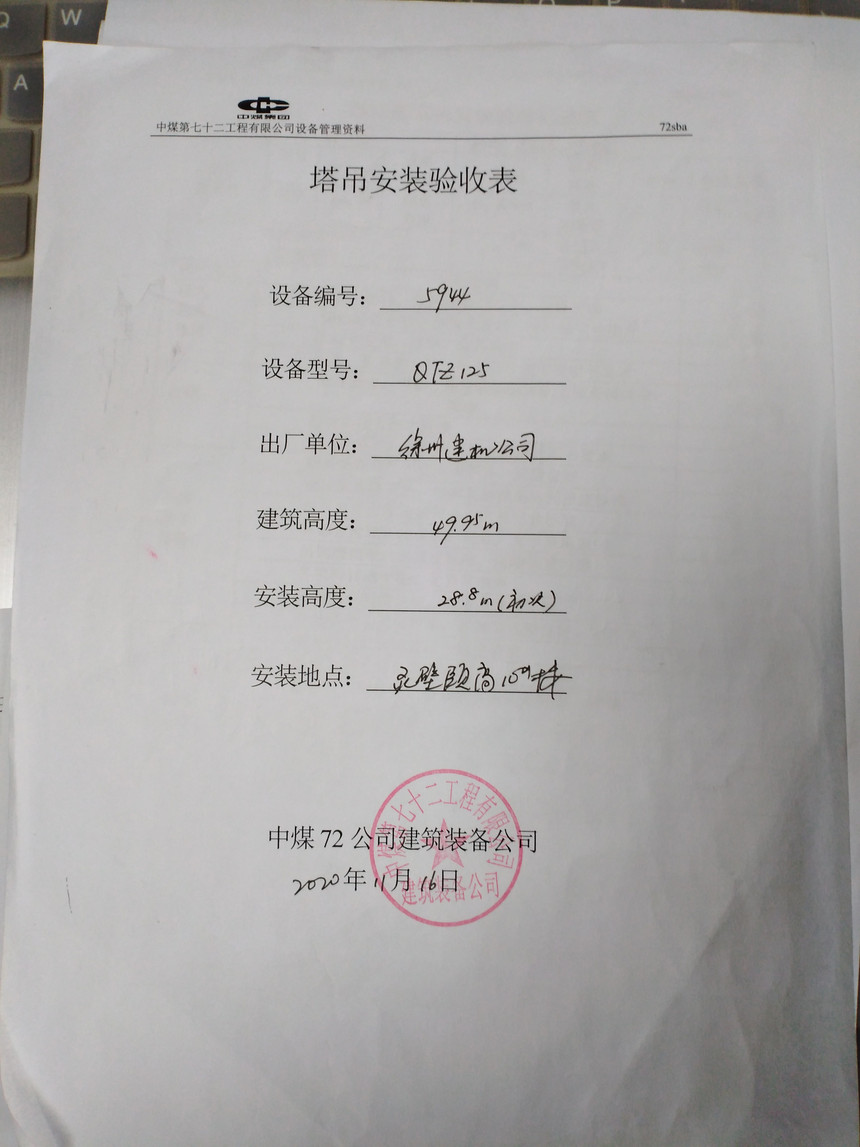 Q W
A
中煤集团
中煤第七十二工程有限公司设备管理资料 72sba
塔吊安装验收表
设备编号: 5944
设备型号: QTZ125
出厂单位: 徐州建机公司
建筑高度: 49.95m
安装高度: 28.8m(初次)
安装地点: 灵璧颐高10#栋
中煤72公司建筑装备公司
2020年11月16日
中煤第七十二工程有限公司
建筑装备公司